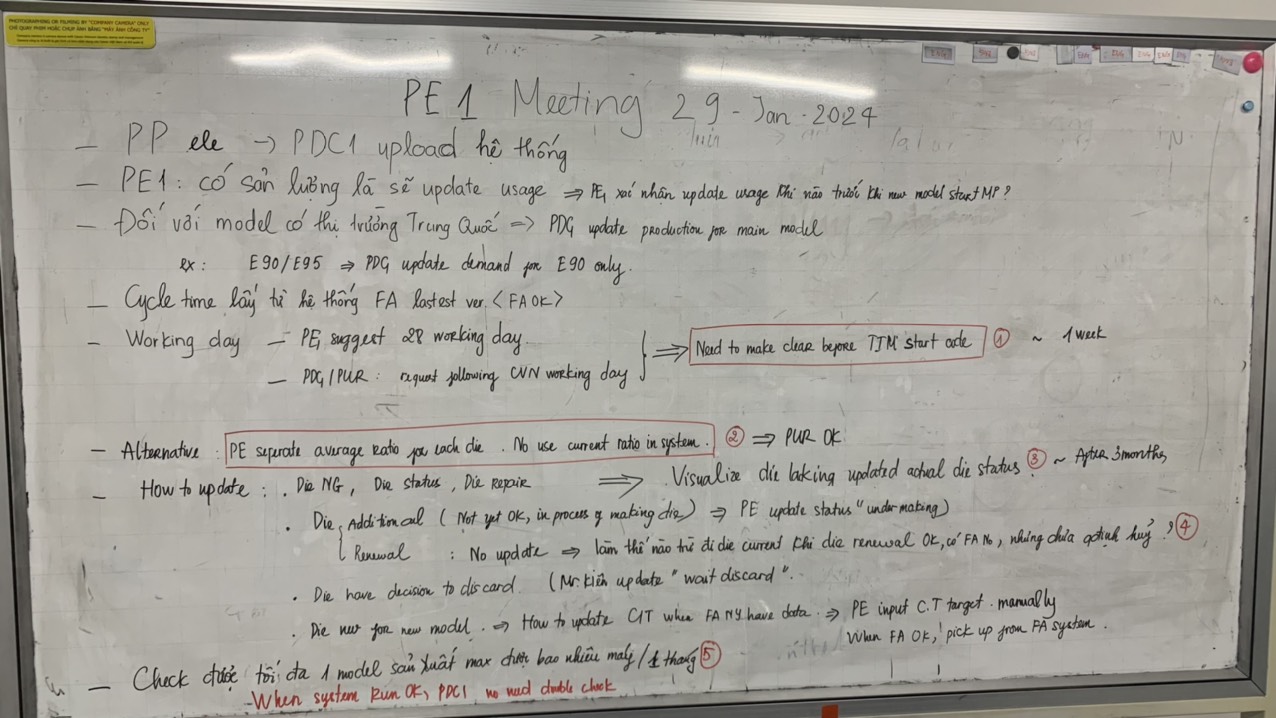 PHOTOGRAPHING OR FILMING BY "COMPANY CAMERA" ONLY
CHỈ QUAY PHIM HOẶC CHỤP ẢNH BẰNG "MÁY ẢNH CÔNG TY"
PE 1 Meeting 29-Jan-2024
- PP ele → PDC1 upload hệ thống
- PE1: có sản lượng là sẽ update usage ⇒ PE1 xác nhận update usage khi nào trước khi new model start MP?
- Đối với model có thị trường Trung Quốc => PDG update production for main model
ex: E90/E95 ⇒ PDG update demand for E90 only.
- Cycle time lấy từ hệ thống FA lastest ver. <FA OK>
- Working day - PE1 suggest 28 working day.
- PDG/PUR: request following CVN working day
⇒ Need to make clear before TJM start code ① ~ 1 week
- Alternative: PE seperate average ratio for each die. No use current ratio in system. ② ⇒ PUR OK
- How to update: . Die NG, Die status, Die Repair ⇒ . Visualize die laking updated actual die status ③ ~ After 3 months
. Die Additional (Not yet OK, in process of making die) ⇒ PE update status "under making)
Renewal : No update ⇒ làm thế nào trừ đi die current khi die renewal OK, có FA No, nhưng chưa qđịnh huỷ? ④
. Die have decision to discard. (Mr. Kiên update "wait discard".
. Die new for new model. ⇒ How to update C/T when FA NY have data. ⇒ PE input C.T target. manually
When FA OK, pick up from FA system.
- Check được tối đa 1 model sản xuất max được bao nhiêu máy/1 tháng ⑤
- When system run OK, PDC1 no need double check